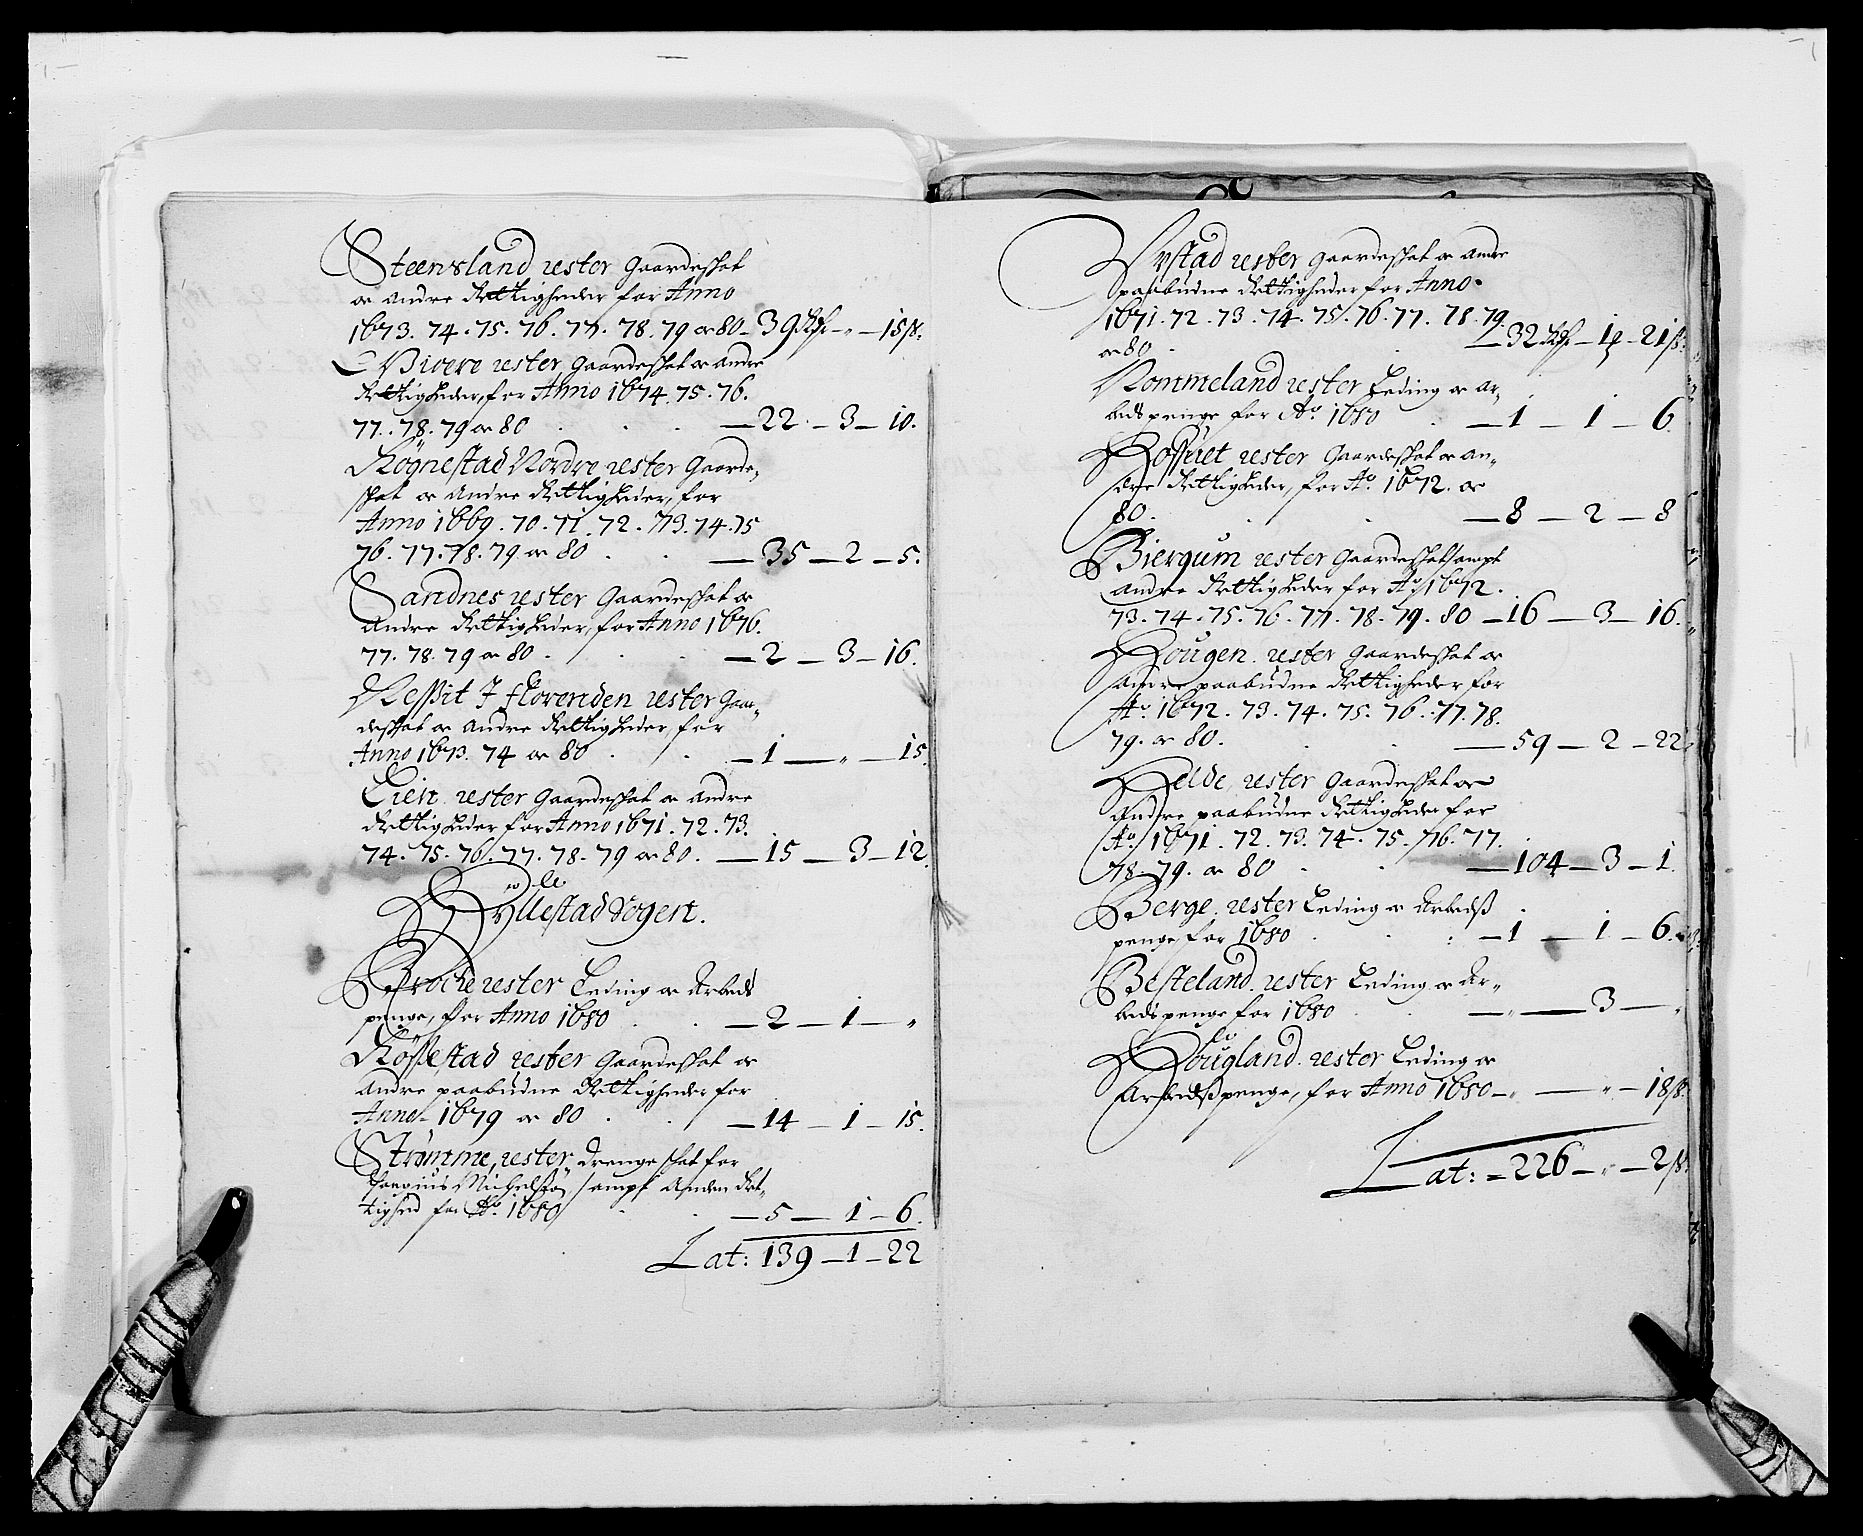 Steensland rester Gaardeskat
oc Andre Rettigheder for Anno
1673. 74. 75. 76. 77. 78. 79 oc 80 – 39 Rdr – " – 15 s.
Vioere rester Gaardeskat oc Andre
Rettigheder, for Anno 1674. 75. 76.
77. 78. 79 oc 80 . . . – 22 – 3 – 10.
Rögnestad Nordre rester Gaarde,,
skat oc Andre Rettigheder, for
Anno 1669. 70. 71. 72. 73. 74. 75
76. 77. 78. 79 oc 80 . . – 35 – 2 – 5.
Sandnes rester Gaardeskat oc
Andre Rettigheder, for Anno 1676.
77. 78. 79 oc 80 . . . – 2 – 3 – 16.
Nessit J florenden rester Gaar,,
deskat oc Andre Rettigheder for
Anno 1673. 74 oc 80 . . – 1 – " – 15.
Eieit rester Gaardeskat oc Andre
Rettigheder for Anno 1671. 72. 73.
74. 75. 76. 77. 78. 79 oc 80. – 15 – 3 – 12.
Hyllestad Sogen.
Broche rester Leding oc Arbeds
penge, for Anno 1680 . . – 2 – 1 – "
Röslestad rester Gaardeskat oc
Andre paabudne Rettigheder for
Anno 1679 oc 80 . . – 14 – 1 – 15.
Strømme, rester Drenge skat for
Michelsøn, sampt Anden Ret,,
tighed for Ao. 1680 . . – 5 – 1 – 6.
Lat: 139 – 1 – 22
Rystad rester Gaardeskat oc Andre
paabudne Rettigheder for Anno
1671. 72. 73. 74. 75. 76. 77. 78. 79.
oc 80 . . – 32 Rdr – 1 – 21 s.
Nommeland rester Leding oc Ar,,
beds penge for Ao. 1680 . – 1 – 1 – 6.
Rossuet rester Gaardeskat oc An,,
dre Rettigheder, for Ao. 1672. oc
80. . . – 8 – 2 – 8
Biergum rester Gaardeskat sampt
Andre Rettigheder for Ao 1672.
73. 74. 75. 76. 77. 78. 79. 80 – 16 – 3 – 16.
Hougen rester Gaardeskat oc
Andre paabudne Rettigheder for
Ao. 1672. 73. 74. 75. 76. 77. 78.
79. oc 80. . . – 59 – 2 – 22
Helde rester Gaardeskat oc
Andre paabudne Rettigheder for
Ao. 1671. 72. 73. 74. 75. 76. 77.
78. 79. oc 80 . . – 104 – 3 – 1.
Berge rester Leding oc Arbedss
penge for 1680 . . : – 1 – 1 – 6.
Besteland rester Leding oc Ar,,
beds penge for 1680 . . – " – 3 – "
Hougland rester Leding oc
Arbedss penge, for Anno 1680 – " – " – 18 s.
Lat: – 226 – " – 2 s.